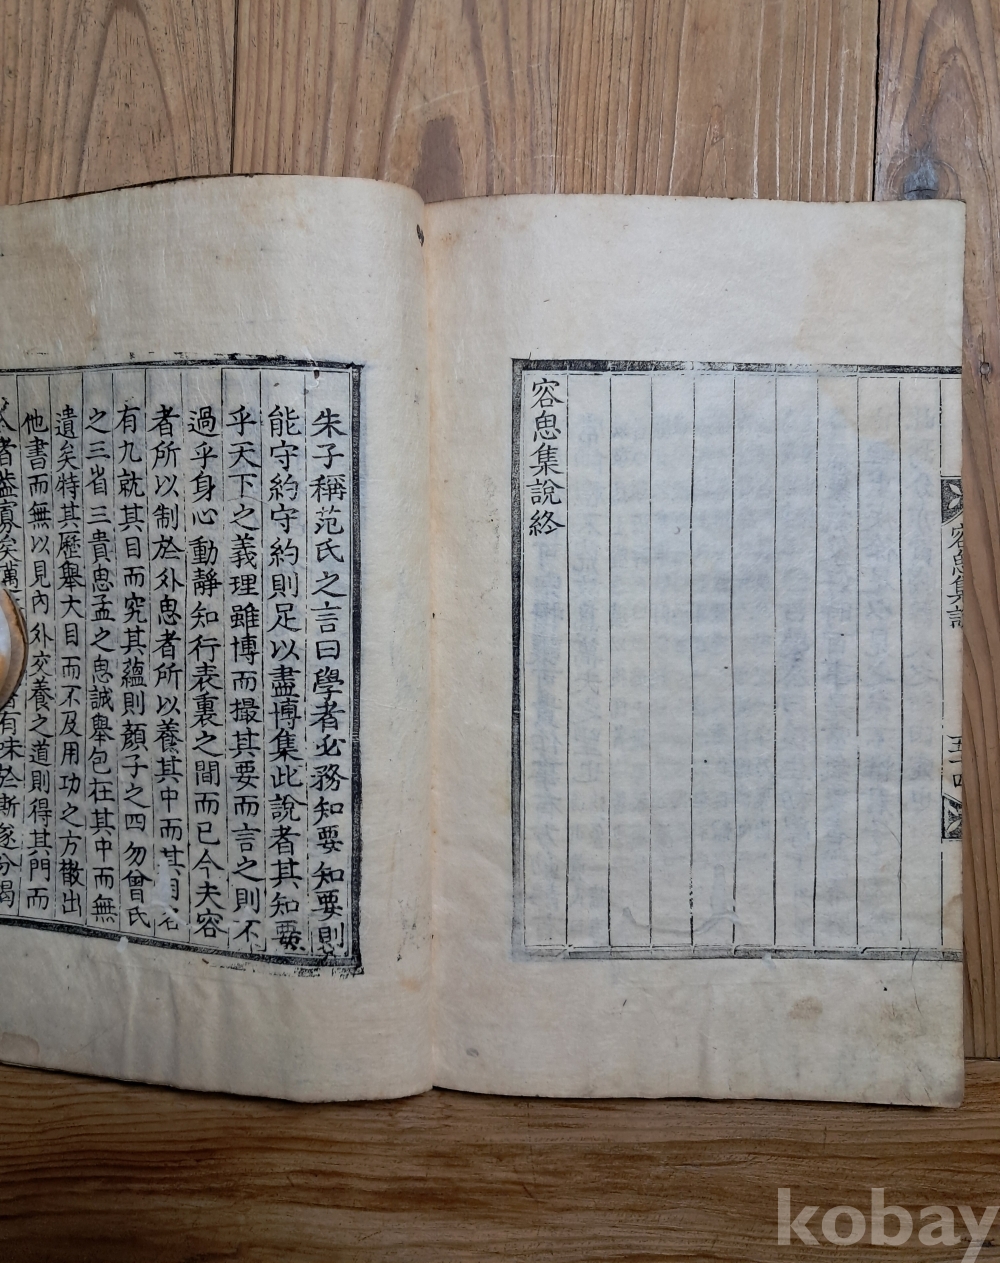 容思集說終
容思集說
五十四
朱子稱范氏之言曰學者必務知要知要則
能守約守約則足以盡博集此說者其知要
乎天下之義理雖博而撮其要而言之則不
過乎身心動靜知行表裏之間而已今夫容
者所以制於外思者所以養其中而其目各
有九就其目而究其蘊則顏子之四勿曾氏
之三省三貴思孟之思誠舉包在其中而無
遺矣特其歷舉大目而不及用功之方散出
他書而無以見內外交養之道則得其門而
者蓋寡矣
有味於斯遂分揭
kobay